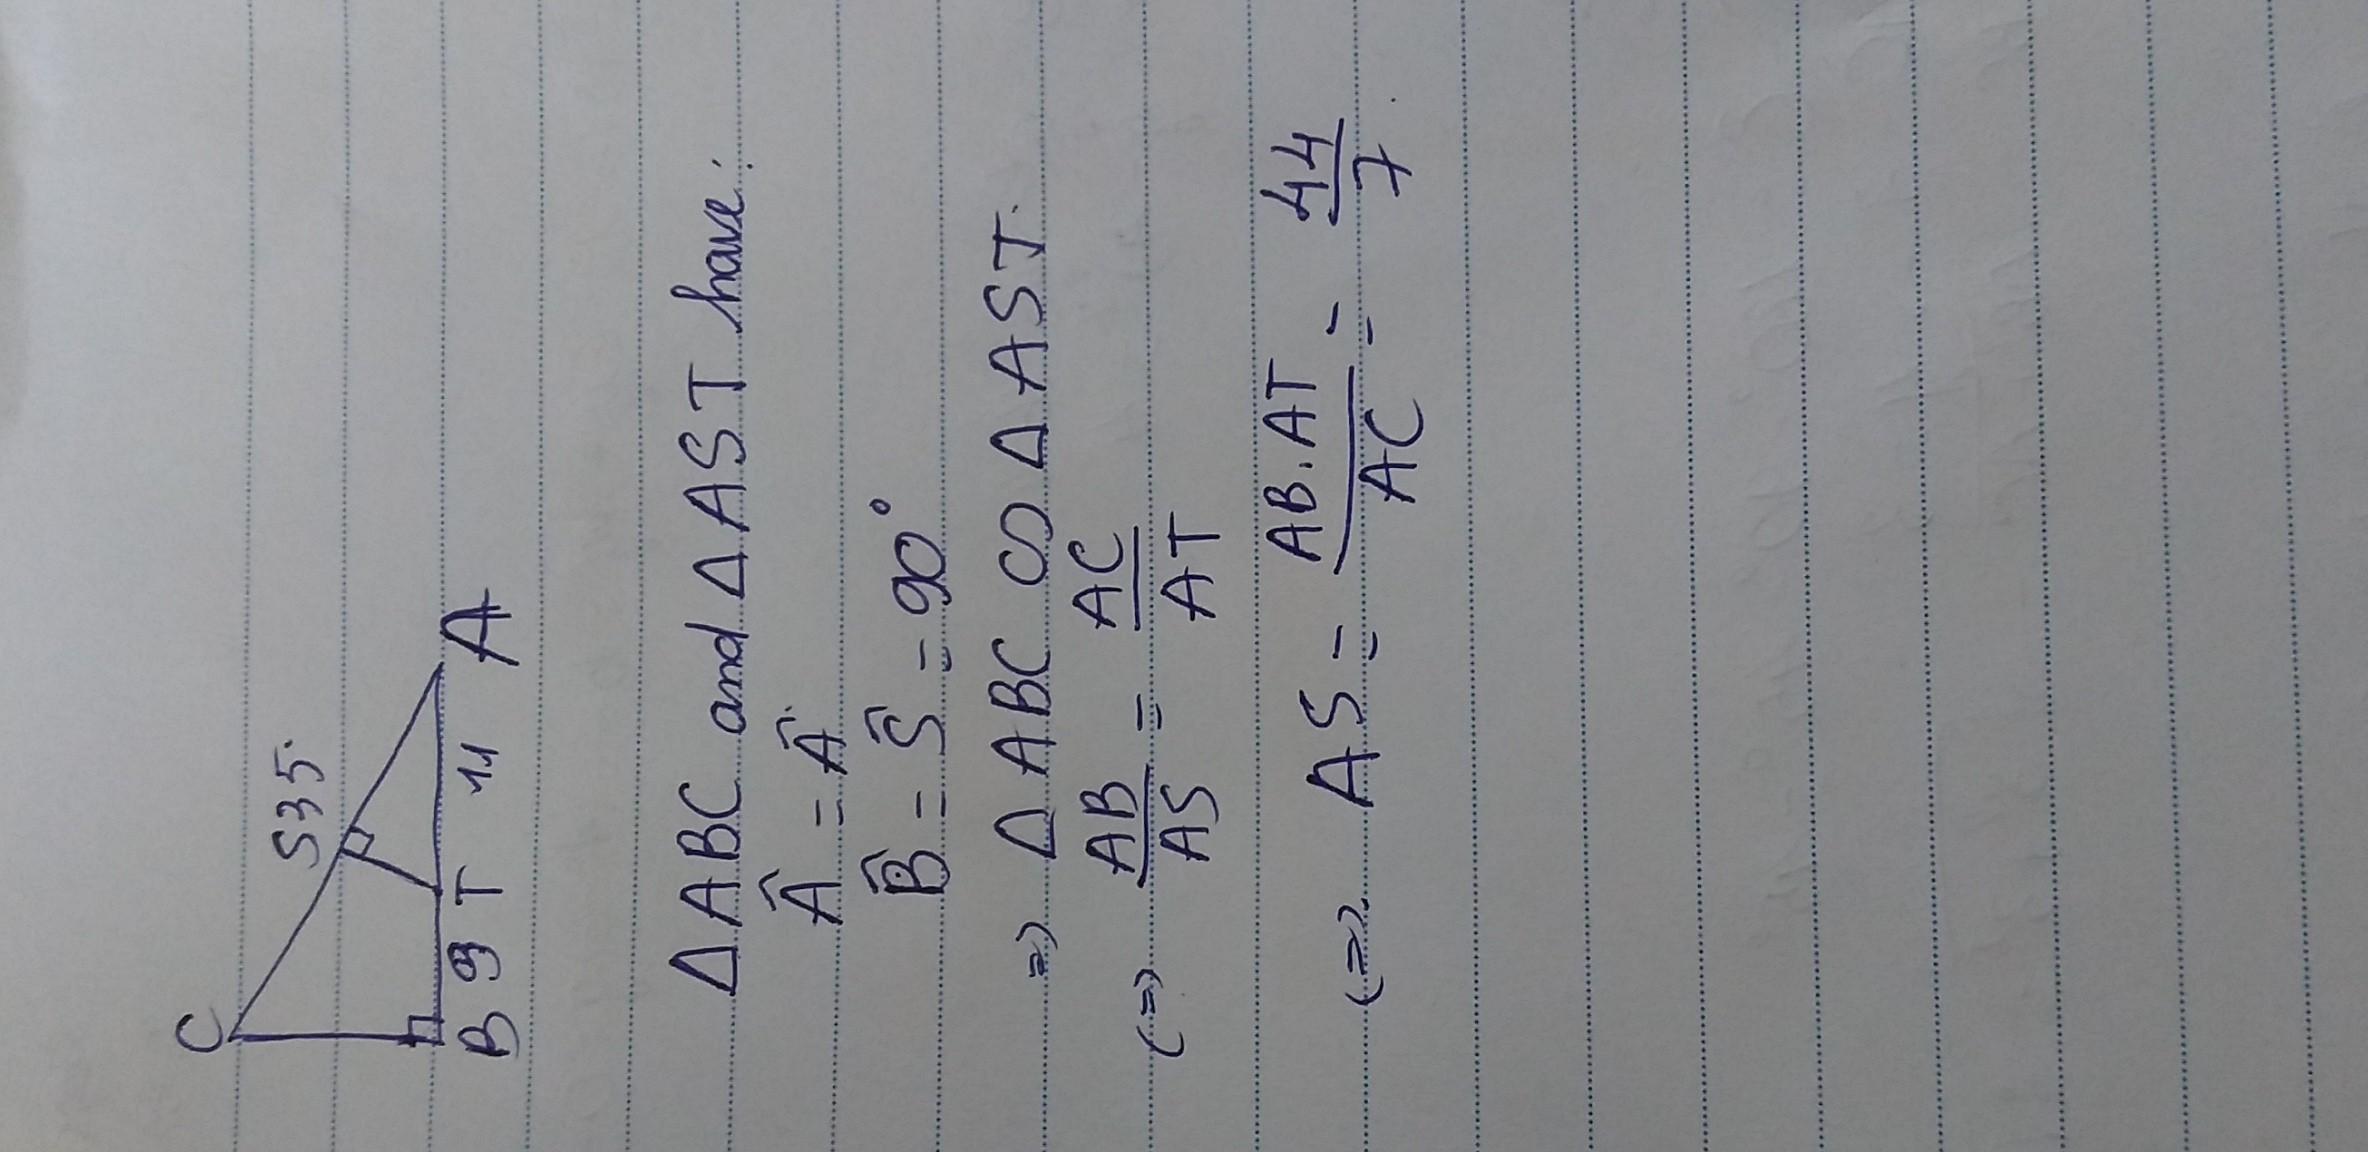 C
S 35
B 9 T 11 A
ΔABC and ΔAST have:
Â = Â
B̂ = Ŝ = 90°
=> ΔABC ∽ ΔAST.
<=> AB/AS = AC/AT
<=> AS = AB.AT/AC = 44/7.